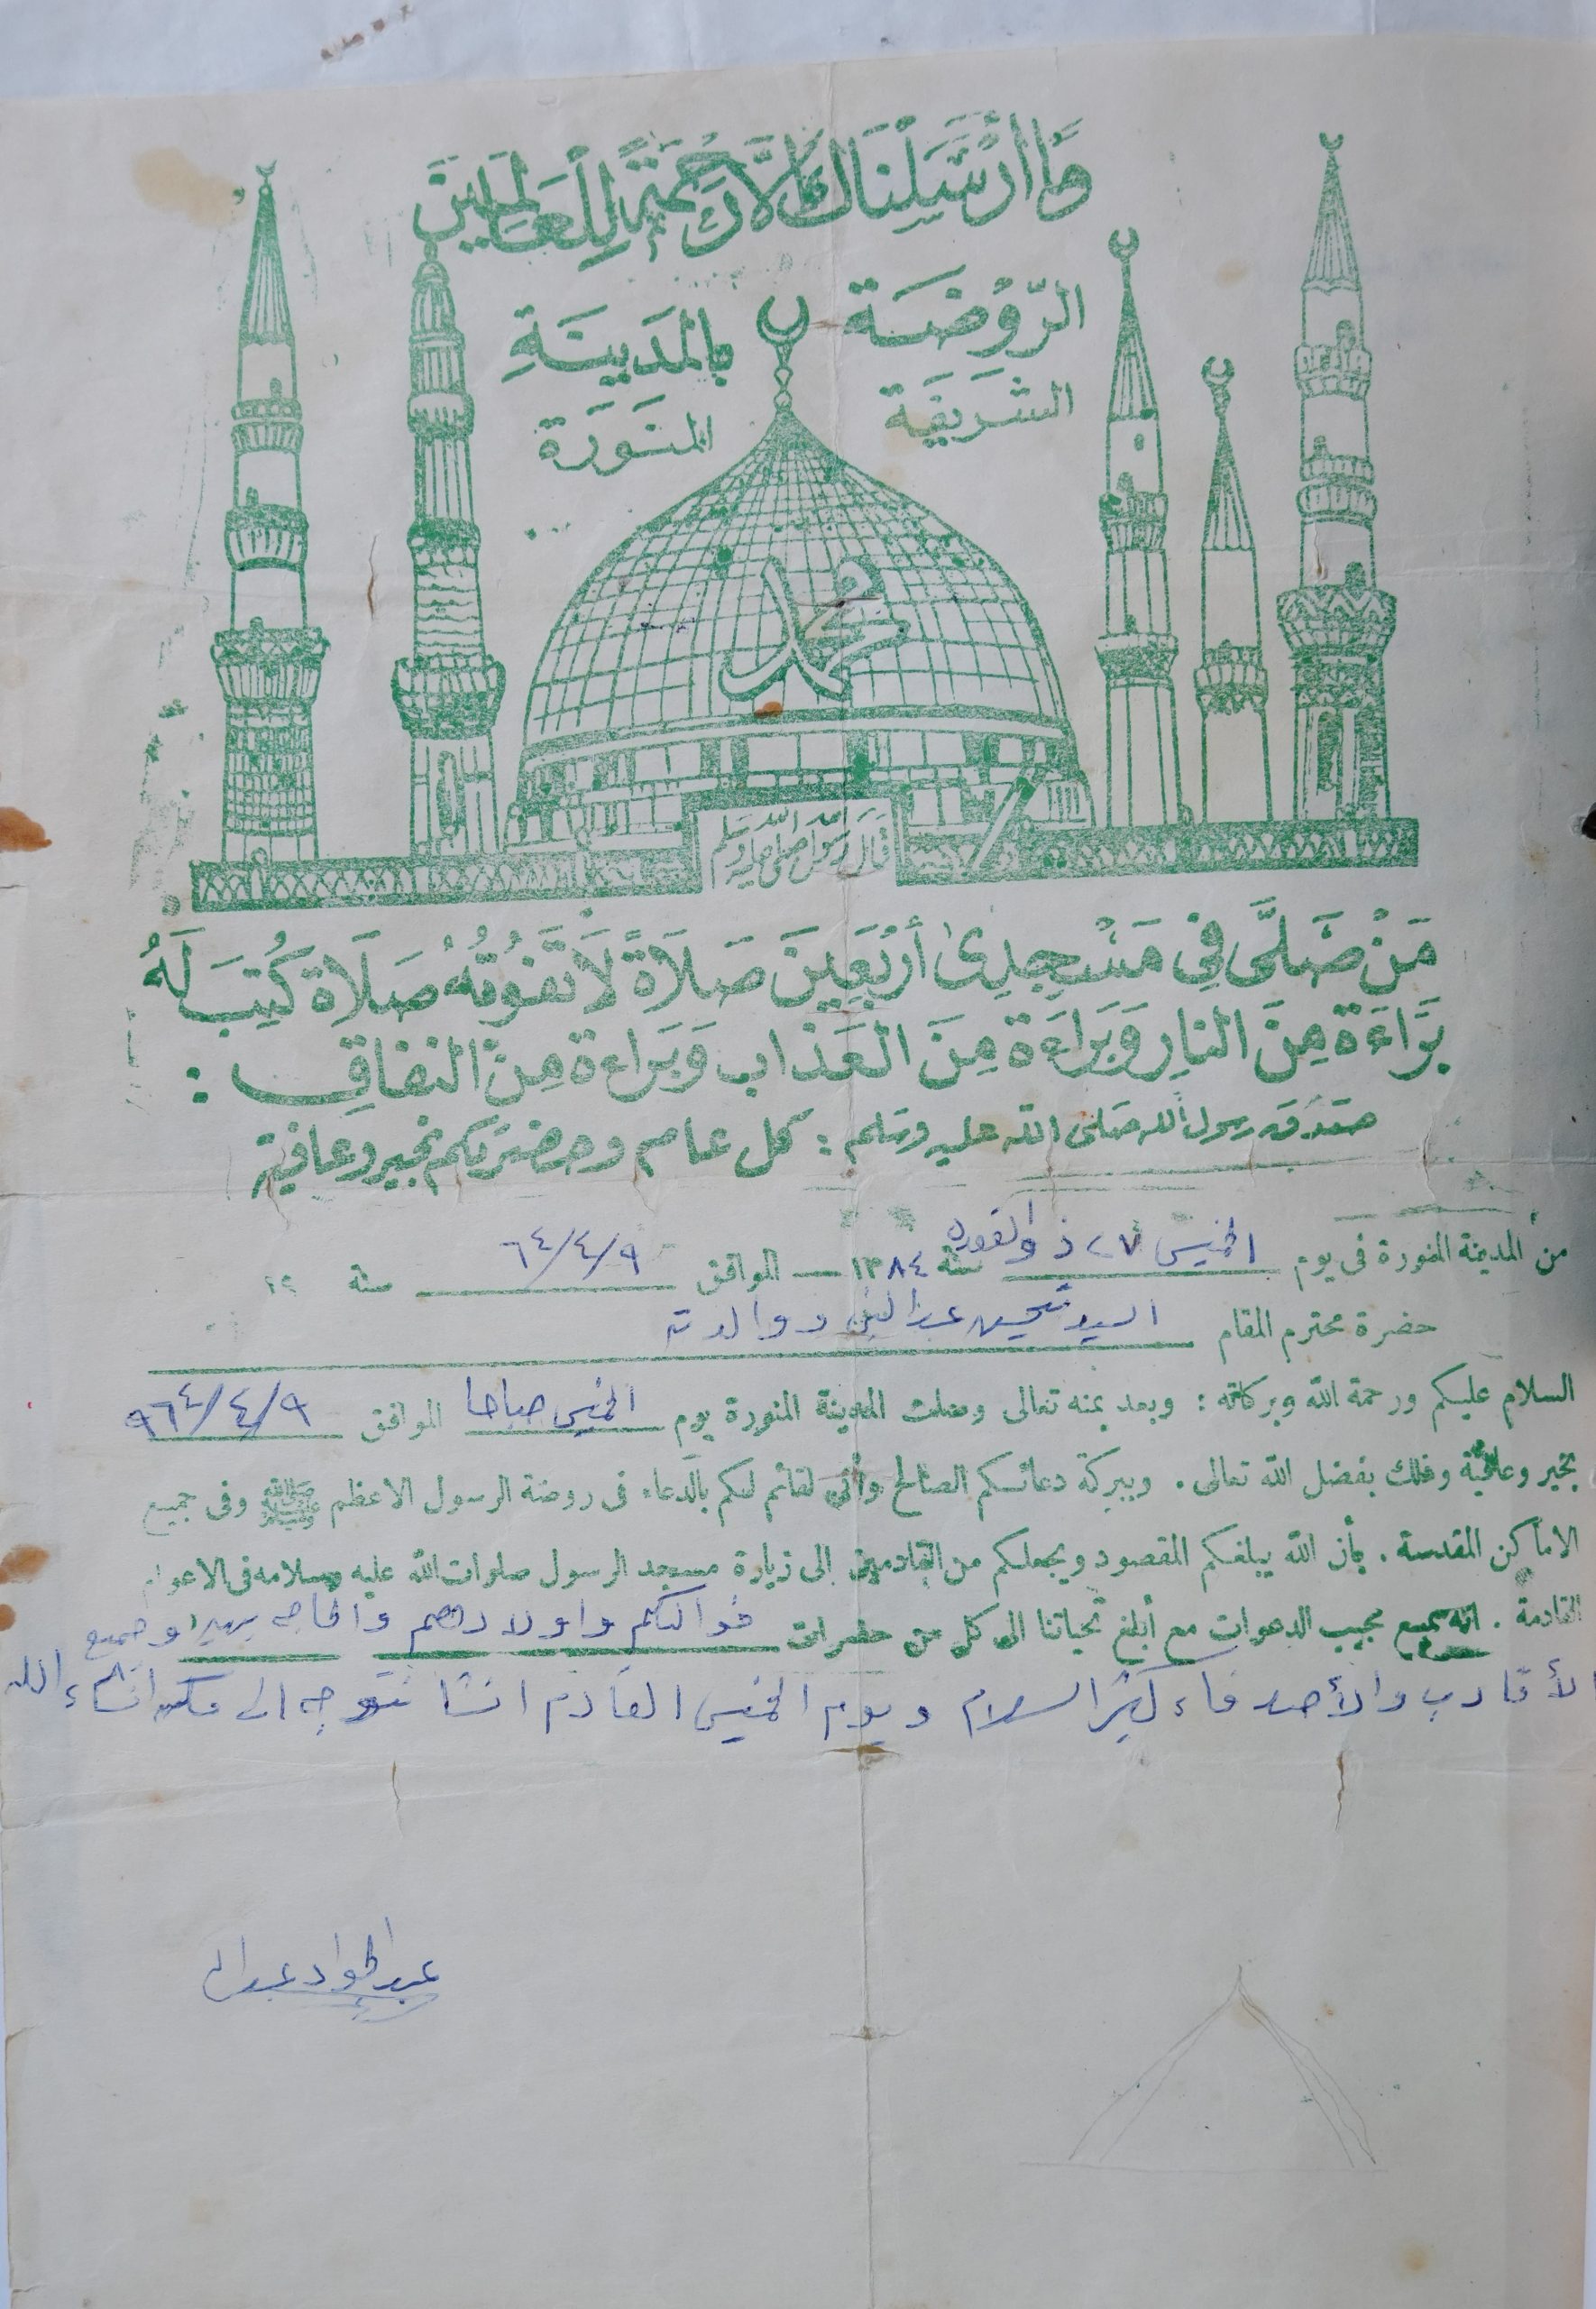 وَمَا أَرْسَلْنَاكَ إِلَّا رَحْمَةً لِلْعَالَمِينَ
الرَّوْضَة بِالمَدِينَةِ
الشَرِيفَة المنَوَّرَة
محمد
قَالَ رَسُول اللّه صلى اللّه عليه وسلم
مَنْ صَلَّى فِي مَسْجِدِي أَرْبَعِينَ صَلَاةً لَا تَفُوتُهُ صَلَاة كُتِبَ لَهُ
بَرَاءَة مِنَ النارِ وَبَرَاءَة مِنَ العَذاب وَبَرَاءة مِنَ النفاقِ :
صَدَقَ رسول الله صَلى الله عليه وسلم : كل عام وحضرتكم بخير وعافية
من المدينة المنورة في يوم الخميس ٢٧ ذو القعدة سنة ١٣٨٤ — الموافق ٦٤/٤/٩ سنة ١٩
حضرة محترم المقام السيد تحسين عبد ووالدته
السلام عليكم ورحمة الله وبركاته : وبعد بمنه تعالى وصلت المدينة المنورة يوم الخميس صباحا الموافق ٩٦٤/٤/٩
بخير وعافية وذلك بفضل الله تعالى . وببركة دعائكم الصالح وأنى لقائم لكم بالدعاء فى روضة الرسول الاعظم ﷺ وفى جميع
الاماكن المقدسة . بأن الله يبلغكم المقصود ويجعلكم من القادمين إلى زيارة مسجد الرسول صلوات الله عليه وسلامه فى الاعوام
القادمة . انه سميع مجيب الدعوات مع أبلغ تحياتنا الى كل من حضرات خوالكم واولادهم والحاجه وجميع
الأقارب والأصدقاء كثير السلام ويوم الخميس القادم انشا نتوجه الى مكه انشاء الله
عبد الجواد